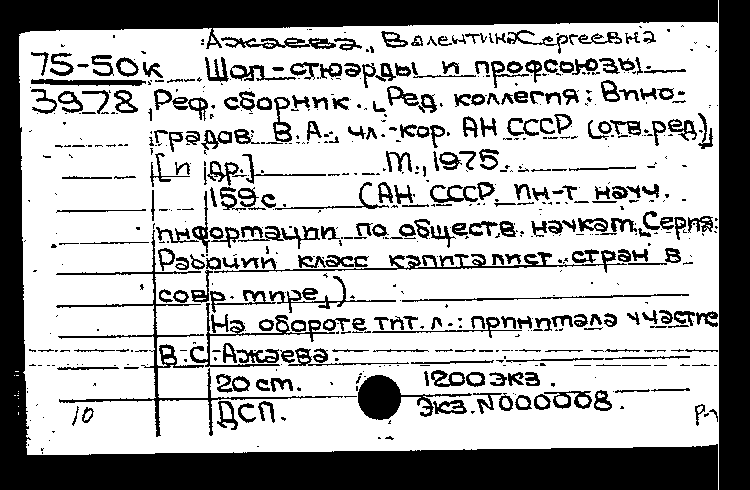 Ажаева, Валентина Сергеевна
75-50к Шоп-стюарды и профсоюзы.
3978 Реф. сборник. Ред. коллегия: Вино-
градов В.А., чл.-кор. АН СССР (отв.ред),
[и др.] М., 1975.
159с. (АН СССР. Ин-т науч.
информации по обществ. наукам. Серия:
Рабочий класс капиталист. стран в
совр. мире,).
На обороте тит. л.: принимала участие
В.С. Ажаева.
20 см. 1200 экз.
10 ДСП. Экз. N000008.